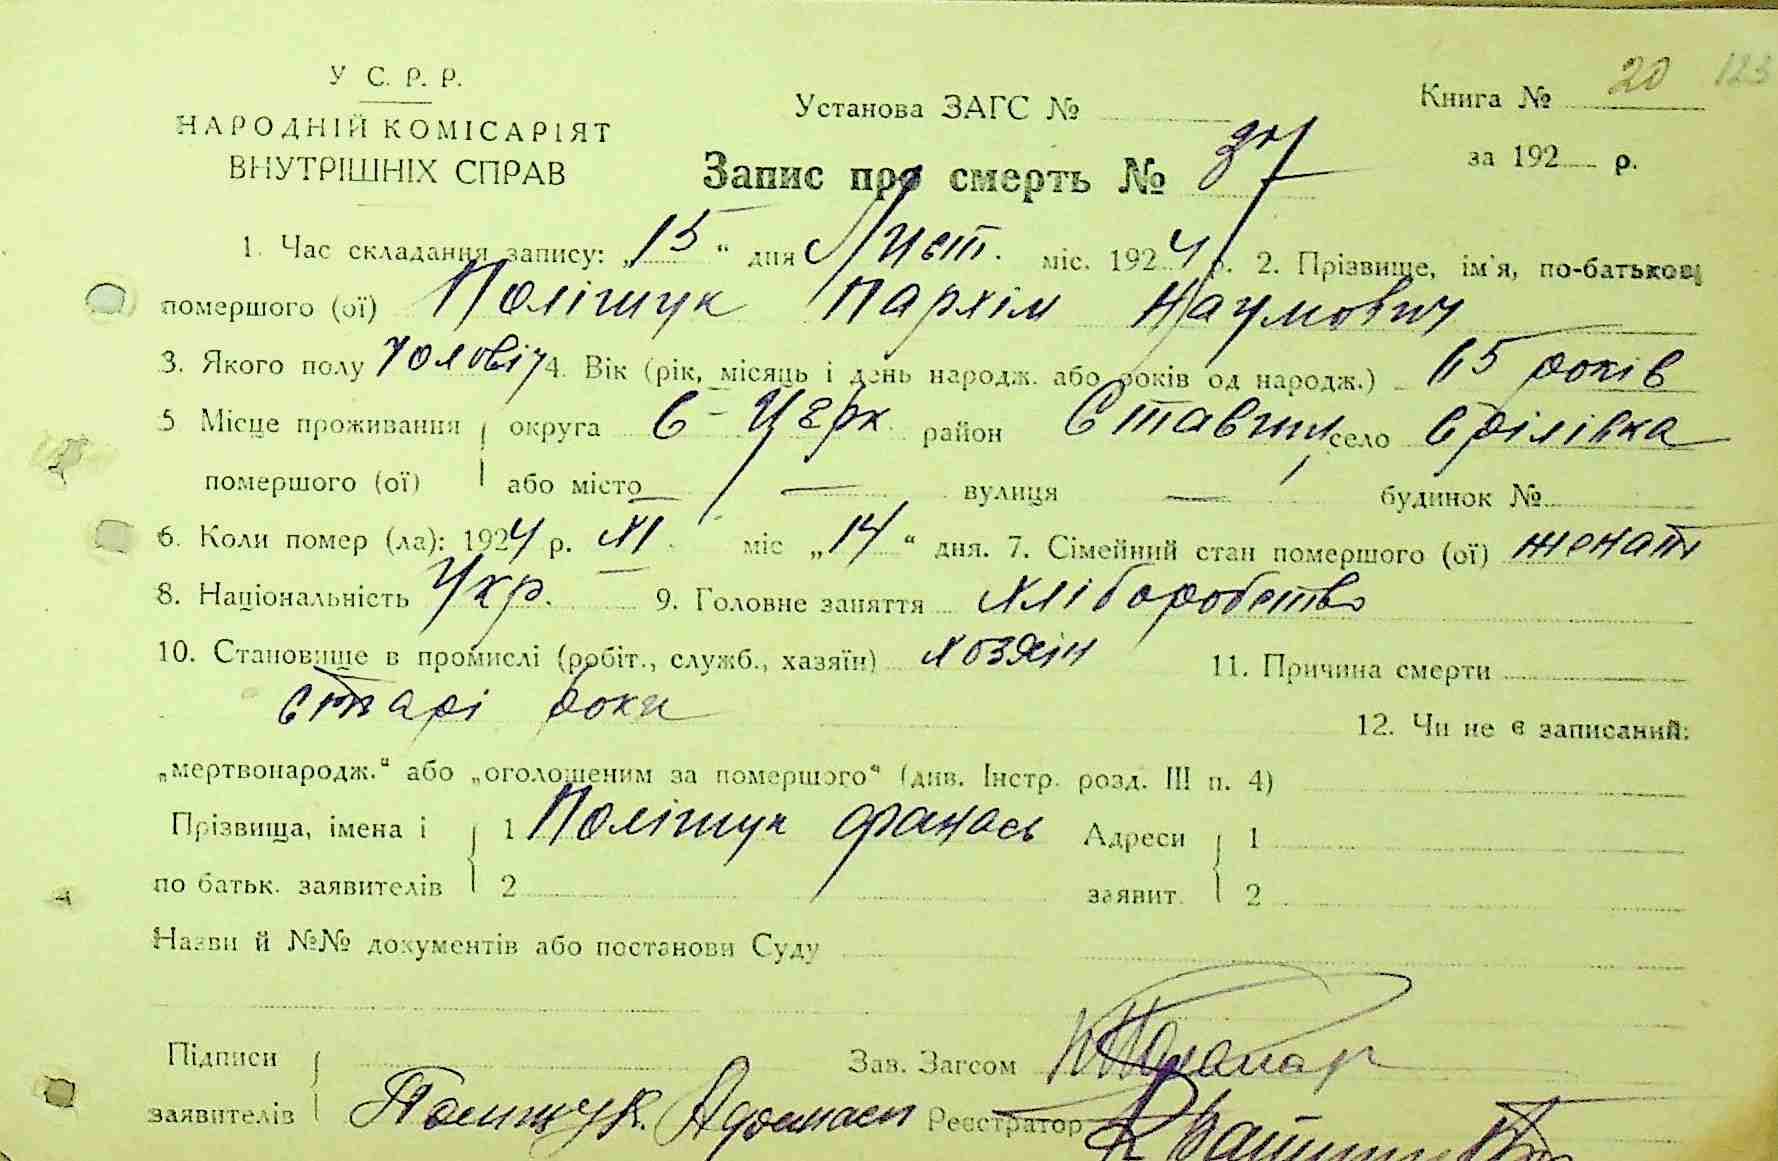 У С. Р. Р.
НАРОДНІЙ КОМІСАРІЯТ
ВНУТРІШНІХ СПРАВ
Установа ЗАГС №
Книга № 20 123
за 192 р.
Запис про смерть № 37
1. Час складання запису: „15“ дня Лист. міс. 1924 р. 2. Прізвище, ім'я, по-батькові
помершого (ої) Поліщук Пархім Наумович
3. Якого полу Чоловіч 4. Вік (рік, місяць і день народж. або років од народж.) 65 років
5 Місце проживання помершого (ої) округа Б-Церк район Ставищ село Стрілівка
або місто — вулиця — будинок №
6. Коли помер (ла): 1924 р. XI міс „14“ дня. 7. Сімейний стан помершого (ої) женат
8. Національність Укр. 9. Головне заняття Хліборобство
10. Становище в промислі (робіт., служб., хазяїн) хозяін 11. Причина смерти
старі роки 12. Чи не є записаний:
„мертвонародж.“ або „оголошеним за помершого“ (див. Інстр. розд. III п. 4)
Прізвища, імена і по батьк. заявителів 1 Поліщук Фанась Адреси заявит. 1
2 2
Назви й №№ документів або постанови Суду
Підписи заявителів Полищук. Афанаси
Зав. Загсом
Реєстратор